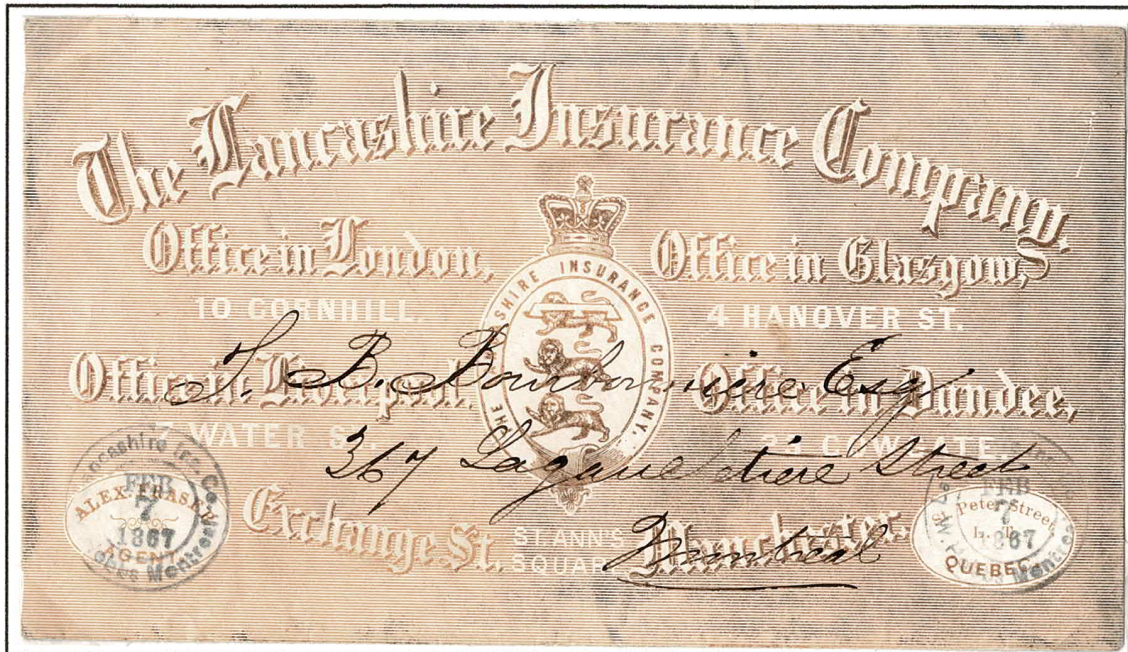 The Lancashire Insurance Company.
Office in London,
10 CORNHILL.
Office in Glasgow,
4 HANOVER ST.
THE SHIRE INSURANCE COMPANY.
Office in Liverpool.
WATER
Office in Dundee,
COWGATE.
Exchange St.
ST ANN'S
SQUARE
Manchester.
B. Bourbonniere Esq
367 Lagauchetiere Street
Montreal
ALEX. FRASER
AGENT
FEB
7
1867
Lancashire Ins. Co.
Montreal
St Peter Street
QUEBEC.
FEB
7
1867